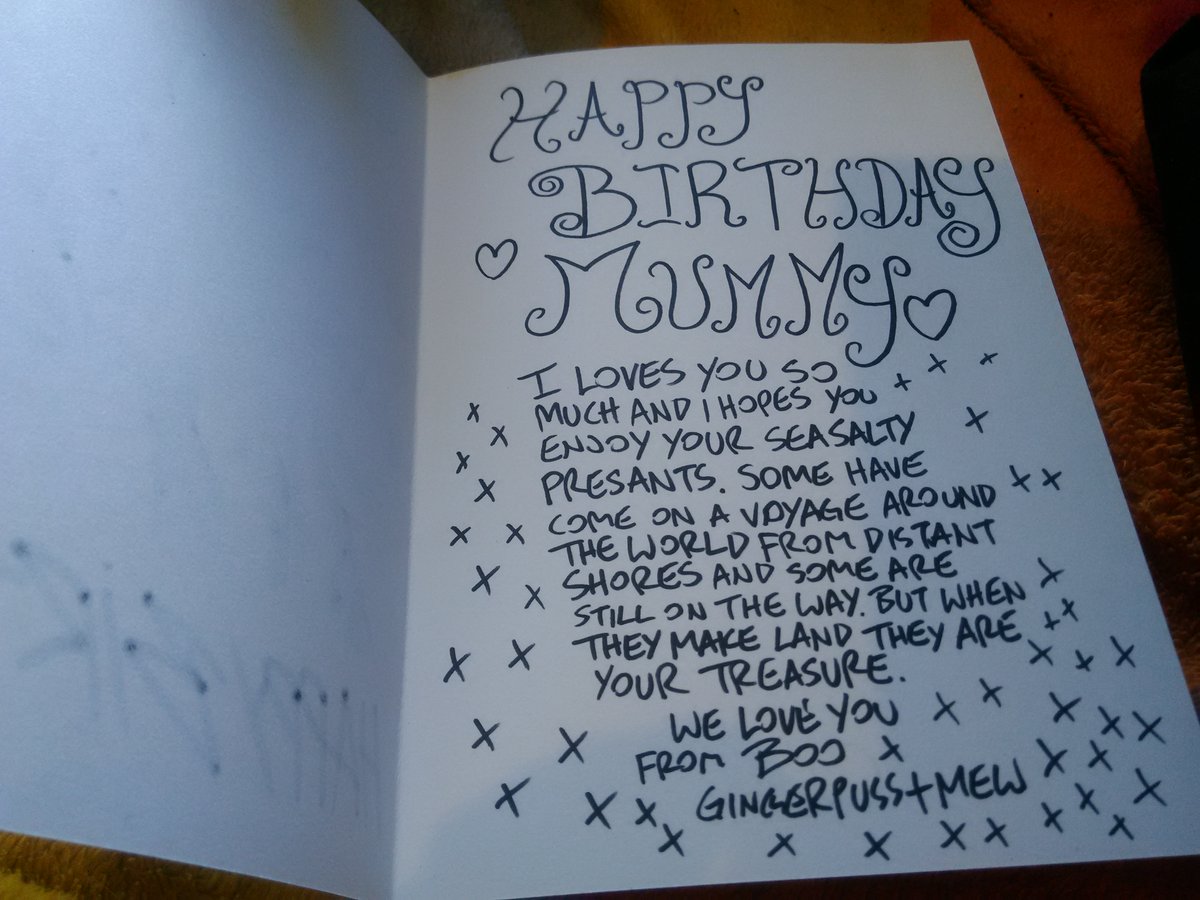 HAPPY
BIRTHDAY
MUMMY
I LOVES YOU SO
MUCH AND I HOPES YOU
ENJOY YOUR SEASALTY
PRESANTS. SOME HAVE
COME ON A VOYAGE AROUND
THE WORLD FROM DISTANT
SHORES AND SOME ARE
STILL ON THE WAY. BUT WHEN
THEY MAKE LAND THEY ARE
YOUR TREASURE.
WE LOVE YOU
FROM BOO
GINGERPUSS+MEW